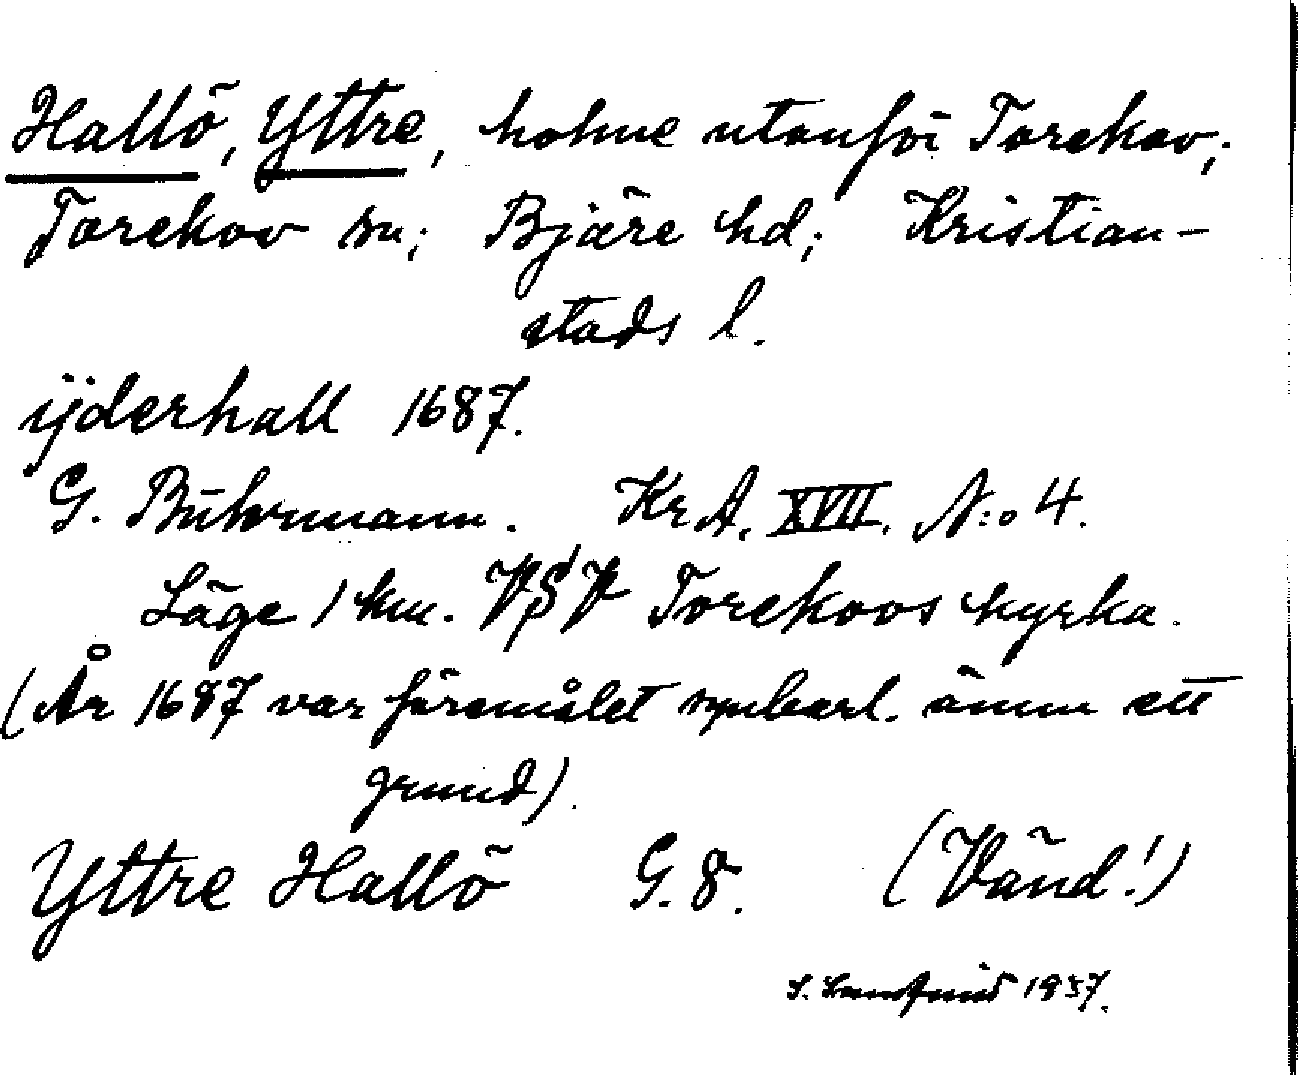 Hallö, Yttre, holme utanför Torekov;
Torekov sn; Bjäre hd; Kristian-
stads l.
ÿderhall 1687.
G. Buhrmann. Kr A. XVII. N:o 4.
Läge 1 km. VSV Torekovs kyrka.
(År 1687 var föremålet synbarl. ännu ett
grund).
Yttre Hallö G. 8. (Vänd!)
S. 1937.